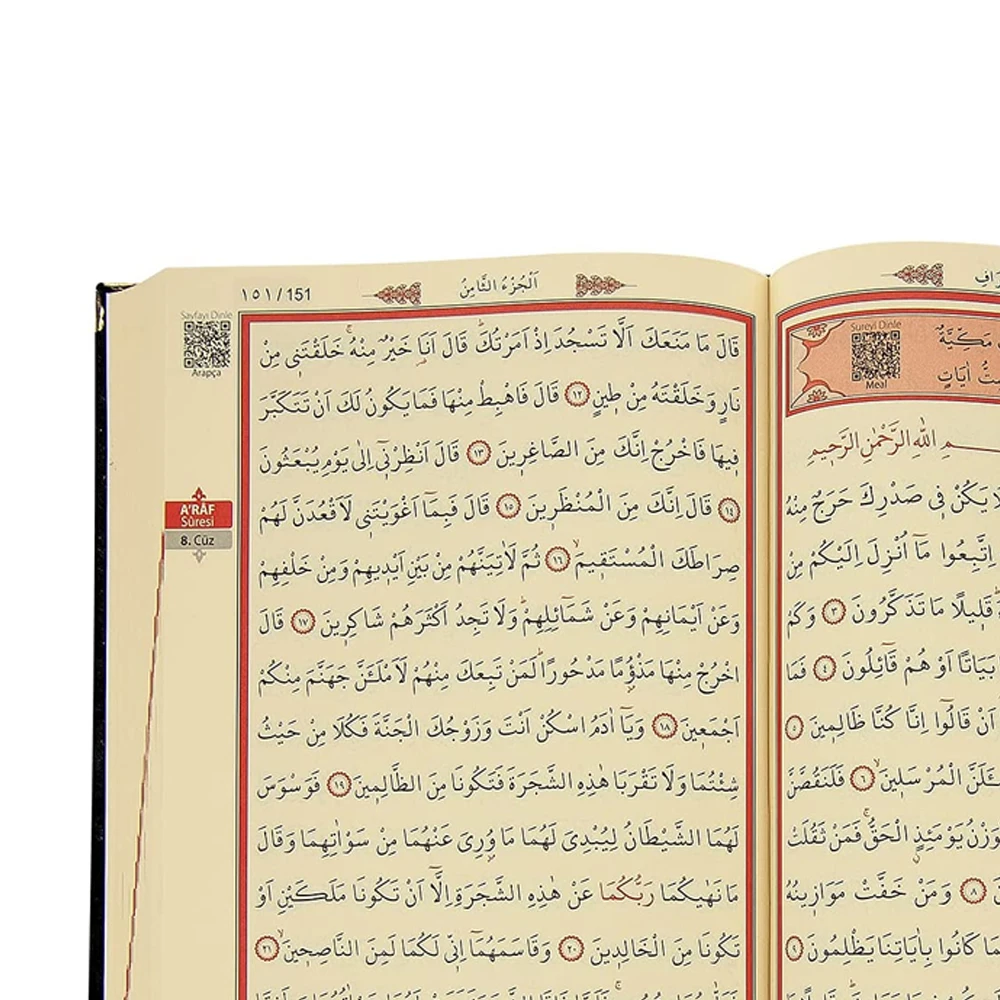 ١٥١ / 151
اَلْجُزْءُ الثَّامِنُ
Sayfayı Dinle
Arapça
A'RÂF
Sûresi
8. Cüz
قَالَ مَا مَنَعَكَ اَلَّا تَسْجُدَ اِذْ اَمَرْتُكَۜ قَالَ اَنَا۬ خَيْرٌ مِنْهُۚ خَلَقْتَن۪ي مِنْ
نَارٍ وَخَلَقْتَهُ مِنْ ط۪ينٍ ﴿١٢﴾ قَالَ فَاهْبِطْ مِنْهَا فَمَا يَكُونُ لَكَ اَنْ تَتَكَبَّرَ
ف۪يهَا فَاخْرُجْ اِنَّكَ مِنَ الصَّاغِر۪ينَ ﴿١٣﴾ قَالَ اَنْظِرْن۪ٓي اِلٰى يَوْمِ يُبْعَثُونَ
﴿١٤﴾ قَالَ اِنَّكَ مِنَ الْمُنْظَر۪ينَ ﴿١٥﴾ قَالَ فَبِمَٓا اَغْوَيْتَن۪ي لَاَقْعُدَنَّ لَهُمْ
صِرَاطَكَ الْمُسْتَق۪يمَۙ ﴿١٦﴾ ثُمَّ لَاٰتِيَنَّهُمْ مِنْ بَيْنِ اَيْد۪يهِمْ وَمِنْ خَلْفِهِمْ
وَعَنْ اَيْمَانِهِمْ وَعَنْ شَمَٓائِلِهِمْۜ وَلَا تَجِدُ اَكْثَرَهُمْ شَاكِر۪ينَ ﴿١٧﴾ قَالَ
اخْرُجْ مِنْهَا مَذْؤُ۫مًا مَدْحُورًاۜ لَمَنْ تَبِعَكَ مِنْهُمْ لَاَمْلَـَٔنَّ جَهَنَّمَ مِنْكُمْ
اَجْمَع۪ينَ ﴿١٨﴾ وَيَٓا اٰدَمُ اسْكُنْ اَنْتَ وَزَوْجُكَ الْجَنَّةَ فَكُلَا مِنْ حَيْثُ
شِئْتُمَا وَلَا تَقْرَبَا هٰذِهِ الشَّجَرَةَ فَتَكُونَا مِنَ الظَّالِم۪ينَ ﴿١٩﴾ فَوَسْوَسَ
لَهُمَا الشَّيْطَانُ لِيُبْدِيَ لَهُمَا مَا وُ۫رِيَ عَنْهُمَا مِنْ سَوْاٰتِهِمَا وَقَالَ
مَا نَهٰيكُمَا رَبُّكُمَا عَنْ هٰذِهِ الشَّجَرَةِ اِلَّٓا اَنْ تَكُونَا مَلَكَيْنِ اَوْ
تَكُونَا مِنَ الْخَالِد۪ينَ ﴿٢٠﴾ وَقَاسَمَهُمَٓا اِنّ۪ي لَكُمَا لَمِنَ النَّاصِح۪ينَۙ ﴿٢١﴾
Sureyi Dinle
Meal
مَكِّيَّةٌ
اٰيَاتٍ
اللّٰهِ الرَّحْمٰنِ الرَّح۪يمِ
يَكُنْ ف۪ي صَدْرِكَ حَرَجٌ مِنْهُ
اِتَّبِعُوا مَٓا اُنْزِلَ اِلَيْكُمْ مِنْ
قَل۪يلًا مَا تَذَكَّرُونَ ﴿٣﴾ وَكَمْ
بَيَاتًا اَوْ هُمْ قَٓائِلُونَ ﴿٤﴾ فَمَا
اَنْ قَالُٓوا اِنَّا كُنَّا ظَالِم۪ينَ ﴿٥﴾
الْمُرْسَل۪ينَۙ ﴿٦﴾ فَلَنَقُصَّنَّ
يَوْمَئِذٍۨ الْحَقُّۚ فَمَنْ ثَقُلَتْ
﴿٨﴾ وَمَنْ خَفَّتْ مَوَاز۪ينُهُ
كَانُوا بِاٰيَاتِنَا يَظْلِمُونَ ﴿٩﴾